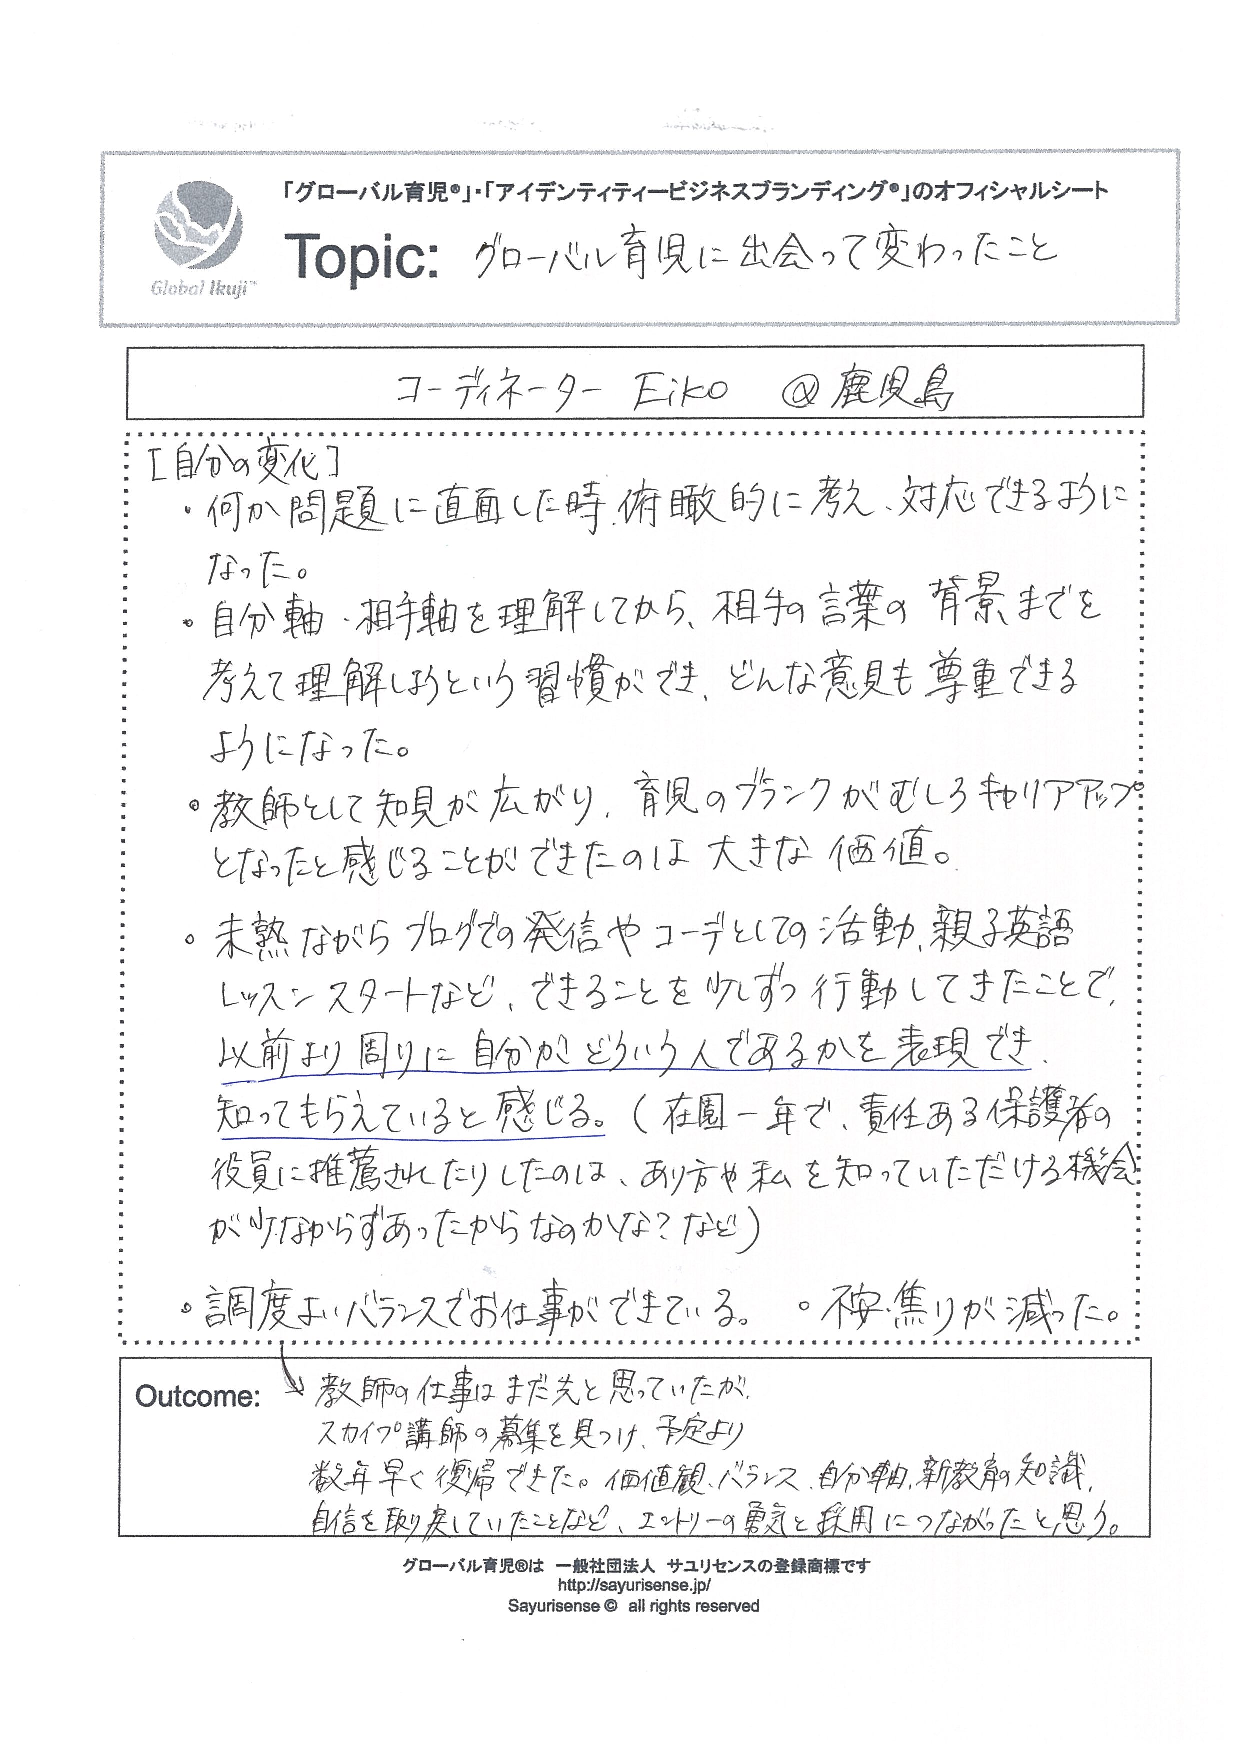 「グローバル育児®」・「アイデンティティービジネスブランディング®」のオフィシャルシート
Global Ikuji™
Topic: グローバル育児に出会って変わったこと
コーディネーター Eiko @鹿児島
[自分の変化]
・何か問題に直面した時、俯瞰的に考え、対応できるように
なった。
・自分軸・相手軸を理解してから、相手の言葉の背景までを
考えて理解しようという習慣ができ、どんな意見も尊重できる
ようになった。
・教師として知見が広がり、育児のブランクがむしろキャリアアップ
となったと感じることができたのは大きな価値。
・未熟ながらブログでの発信やコーデとしての活動、親子英語
レッスンスタートなど、できることを少しずつ行動してきたことで、
以前より周りに自分がどういう人であるかを表現でき、
知ってもらえていると感じる。(在園一年で、責任ある保護者の
役員に推薦されたりしたのは、あり方や私を知っていただける機会
が少なからずあったからなのかな?など)
・調度よいバランスでお仕事ができている。 ・不安・焦りが減った。
Outcome: 教師の仕事はまだ先と思っていたが、
スカイプ講師の募集を見つけ、予定より
数年早く復帰できた。価値観、バランス、自分軸、新教育の知識、
自信を取り戻していたことなど、エントリーの勇気と採用につながったと思う。
グローバル育児®は 一般社団法人 サユリセンスの登録商標です
http://sayurisense.jp/
Sayurisense © all rights reserved